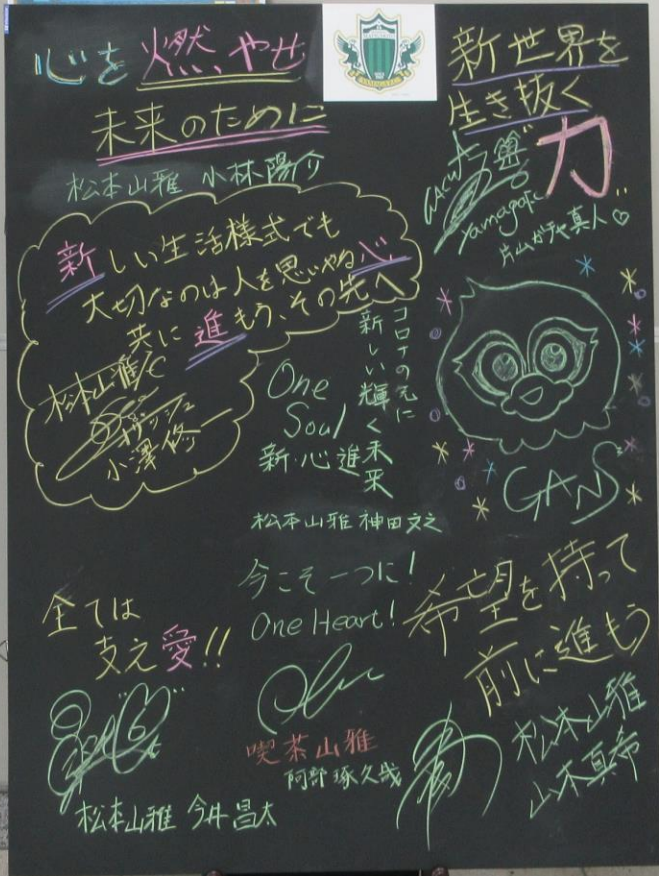 心を燃やせ
未来のために
松本山雅 小林陽介
新世界を
生き抜く
力
Yamagafc
片山ガチャ真人♡
新しい生活様式でも
大切なのは人を思いやる心
共に進もう、その先へ
松本山雅FC
小澤修一
コロナの元に
新しい輝く未来
One
Soul
新・心進
松本山雅 神田文之
GANS
今こそ一つに!
One Heart!
喫茶山雅
阿部琢久哉
全ては
支え愛!!
松本山雅 今井昌太
希望を持って
前に進もう
松本山雅
山本真希